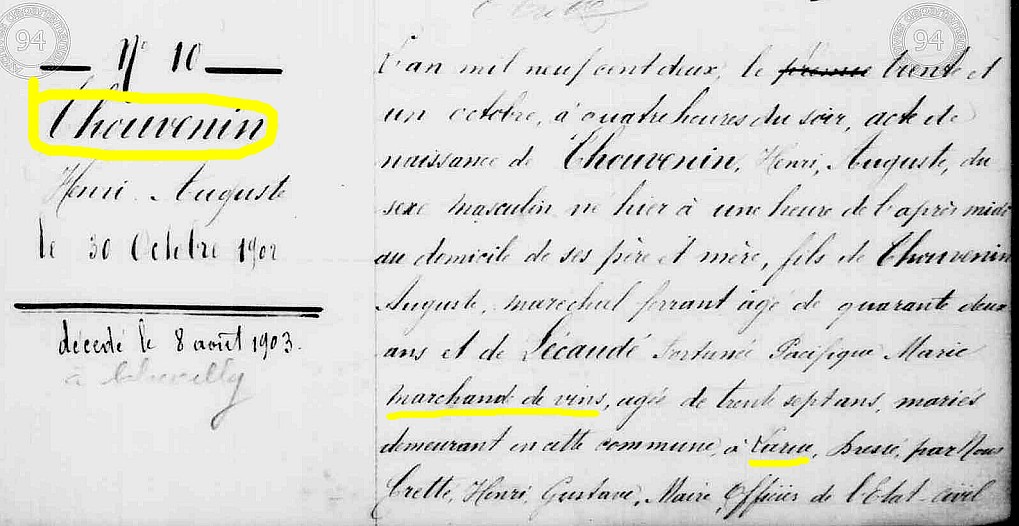 94
N° 10
Thouvenin
Henri Auguste
le 30 Octobre 1902
décédé le 8 août 1903.
à Chevilly
94
L'an mil neuf cent deux, le premier trente et
un octobre, à quatre heures du soir, acte de
naissance de Thouvenin, Henri, Auguste, du
sexe masculin né hier à une heure de l'après midi
au domicile de ses père et mère, fils de Thouvenin
Auguste, maréchal ferrant âgé de quarante deux
ans et de Lécaudé Fortunée Pacifique Marie
marchand de vins, agée de trente sept ans, mariés
demeurant en cette commune, à Larue, Dressé, par Nous
Crette, Henri, Gustave, Maire, Officier de l'Etat-civil